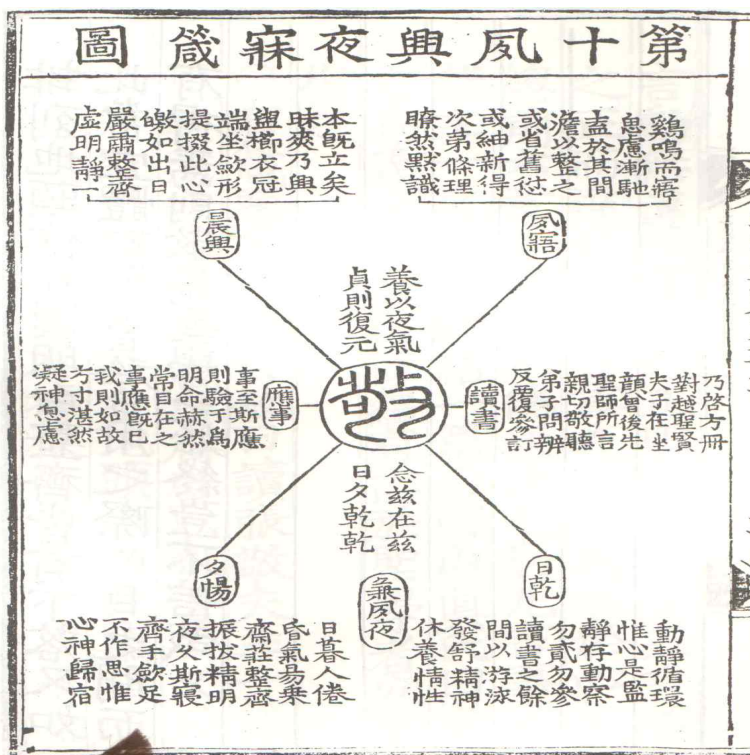 第十夙興夜寐箴圖
雞鳴而寤
息慮漸馳
盍於其間
澹以整之
或省舊愆
或紬新得
次第條理
瞭然默識
夙寤
本旣立矣
昧爽乃興
盥櫛衣冠
端坐斂形
提掇此心
皦如出日
嚴肅整齊
虛明靜一
晨興
養以夜氣
貞則復元
敬
念茲在茲
日夕乾乾
讀書
乃啓方冊
對越聖賢
夫子在坐
顔曾後先
聖師所言
親切敬聽
弟子問辨
反覆參訂
應事
事至斯應
則驗于爲
明命赫然
常目在之
事應旣已
我則如故
方寸湛然
凝神息慮
日乾
動靜循環
惟心是監
靜存動察
勿貳勿參
讀書之餘
間以游泳
發舒精神
休養情性
兼夙夜
夕惕
日暮人倦
昏氣易乗
齋莊整齊
振拔精明
夜久斯寢
齊手斂足
不作思惟
心神歸宿